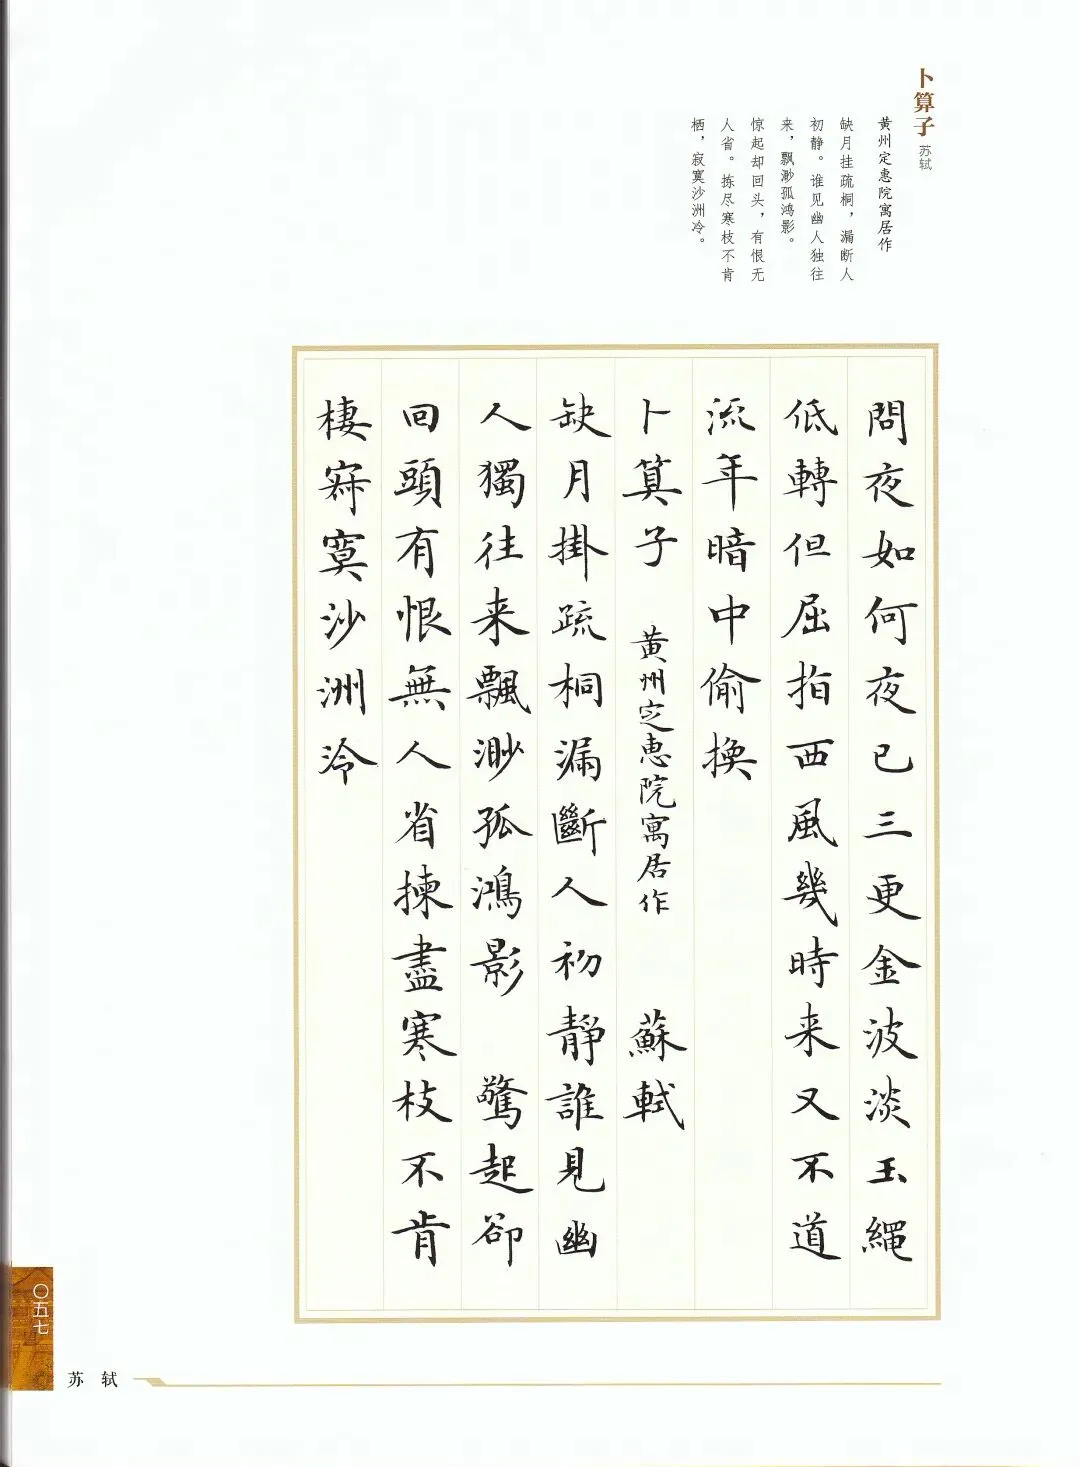 卜算子 苏轼
黄州定惠院寓居作
缺月挂疏桐，漏断人
初静。谁见幽人独往
来，飘渺孤鸿影。
惊起却回头，有恨无
人省。拣尽寒枝不肯
栖，寂寞沙洲冷。
問夜如何夜已三更金波淡玉繩
低轉但屈指西風幾時来又不道
流年暗中偷換
卜算子 黄州定惠院寓居作 蘇軾
缺月掛疏桐漏斷人初靜誰見幽
人獨往来飄渺孤鴻影 驚起卻
回頭有恨無人省揀盡寒枝不肯
棲寂寞沙洲冷
〇五七
苏轼